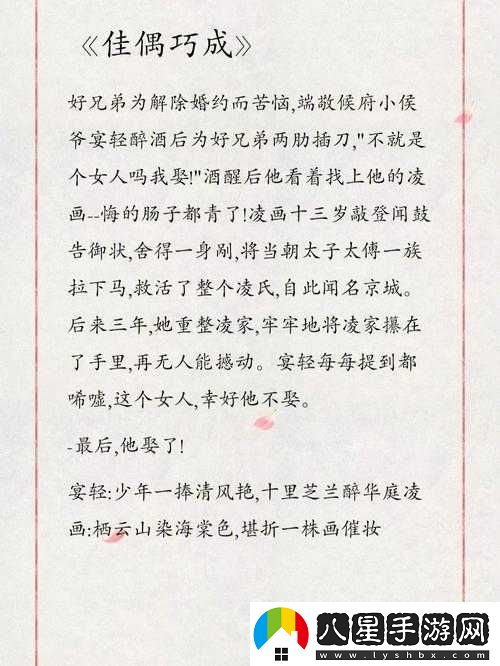 《佳偶巧成》
好兄弟为解除婚约而苦恼,端敬候府小侯
爷宴轻醉酒后为好兄弟两肋插刀,"不就是
个女人吗我娶!"酒醒后他看着找上他的凌
画--悔的肠子都青了!凌画十三岁敲登闻鼓
告御状,舍得一身剐,将当朝太子太傅一族
拉下马,救活了整个凌氏,自此闻名京城。
后来三年,她重整凌家,牢牢地将凌家攥在
了手里,再无人能撼动。宴轻每每提到都
唏嘘,这个女人,幸好他不娶。
-最后,他娶了!
宴轻:少年一捧清风艳,十里芝兰醉华庭凌
画:栖云山染海棠色,堪折一株画催妆
八星手游网
www.lyshbx.com